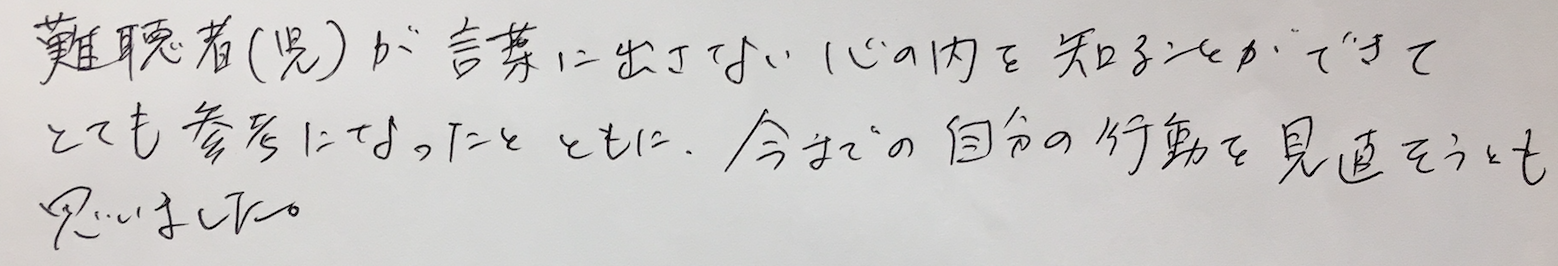 難聴者(児)が言葉に出さない心の内を知ることができて
とても参考になったとともに、今までの自分の行動を見直そうとも
思いました。